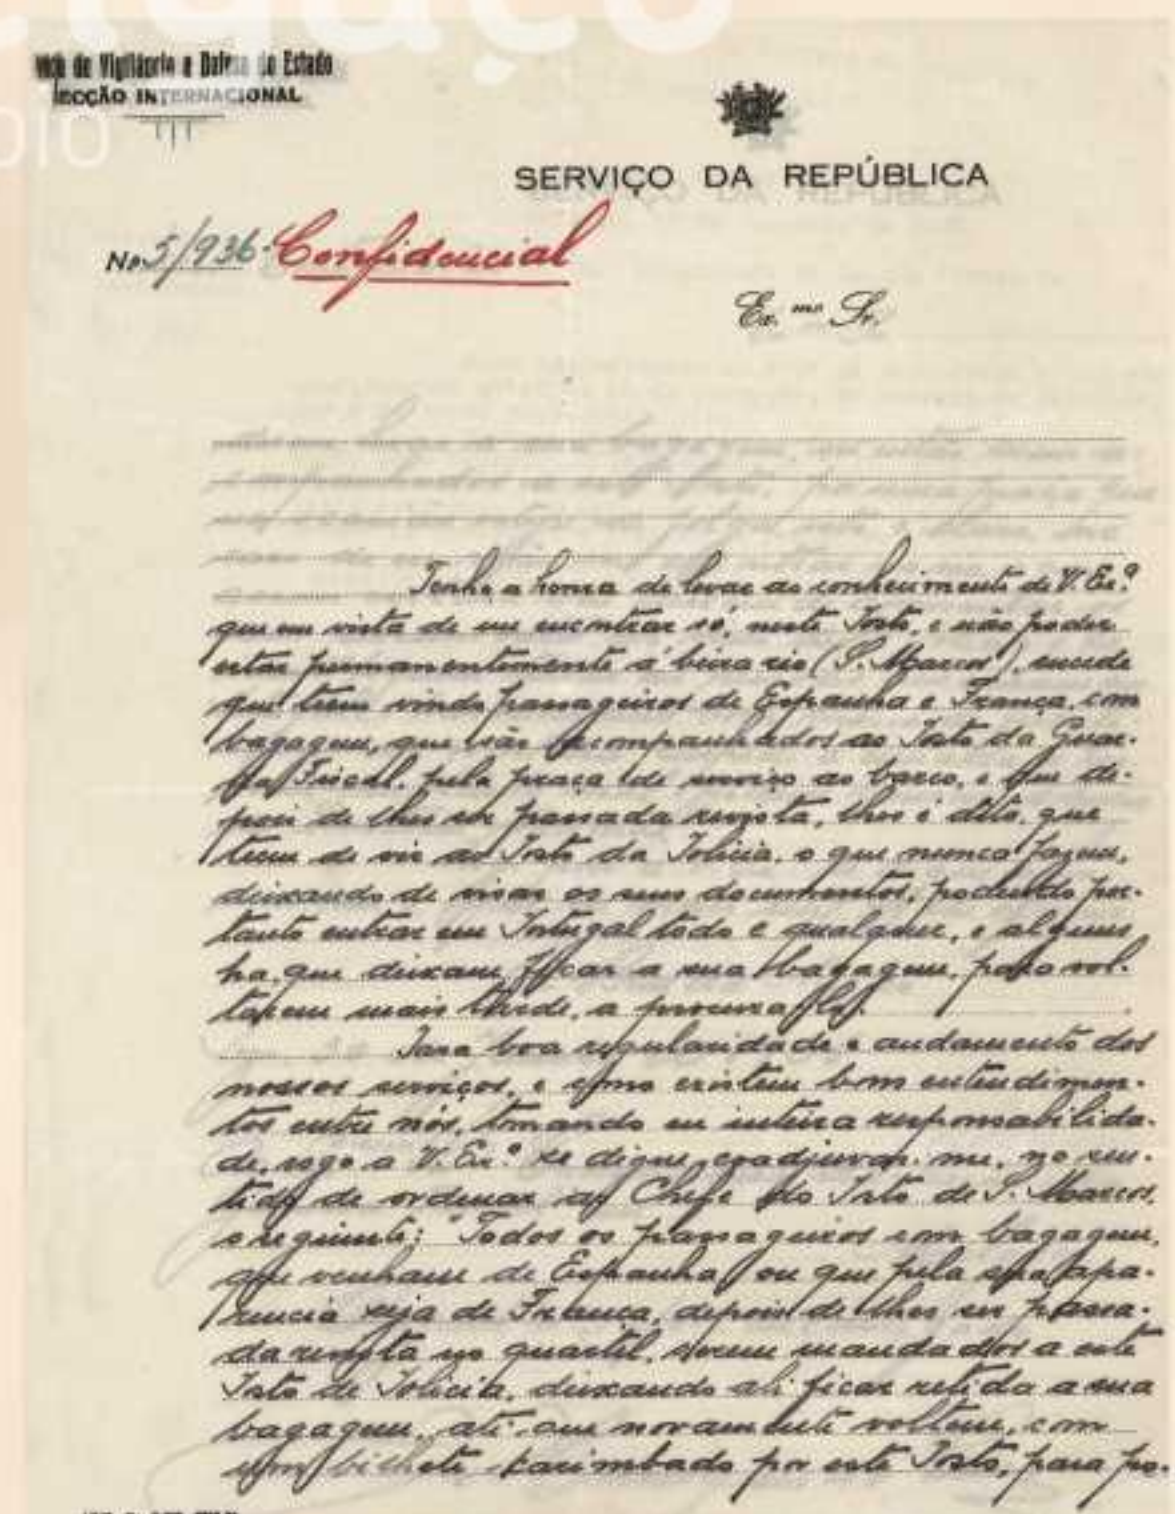 de Vigilância e Defesa do Estado
SECÇÃO INTERNACIONAL
SERVIÇO DA REPÚBLICA
No 5/936 - Confidencial
Ex.mo Sr.
Tenho a honra de levar ao conhecimento de V. Ex.ª
que em vista de me encontrar só, neste Posto, e não poder
estar permanentemente á beira rio (S. Marcos), sucede
que teem vindo passageiros de Espanha e França, com
bagagem, que são acompanhados ao Posto da Guar-
da Fiscal, pela praça de serviço ao barco, e que de-
pois de lhes ser passada revista, lhes é dito, que
teem de vir ao Posto da Policia, o que nunca fazem,
deixando de visar os seus documentos, podendo por-
tanto entrar em Portugal todo e qualquer, e alguns
ha, que deixam ficar a sua bagagem, para vol-
tarem mais tarde, a procura-la.
Para boa regularidade e andamento dos
nossos serviços, e como existem bons entendimen-
tos entre nós, tomando eu inteira responsabilida-
de, rogo a V. Ex.ª se digne coadjuvar-me, no sen-
tido de ordenar ao Chefe do Posto de S. Marcos,
o seguinte: "Todos os passageiros com bagagem,
que venham de Espanha, ou que pela sua apa-
rencia seja de França, depois de lhes ser passa-
da revista no quartel, serem mandados a este
Posto de Policia, deixando ali ficar retida a sua
bagagem, até que novamente voltem, com
um bilhete karimbado por este Posto, para po-